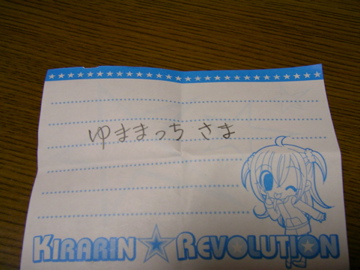 ゆままっち さま
KIRARIN★REVOLUTION